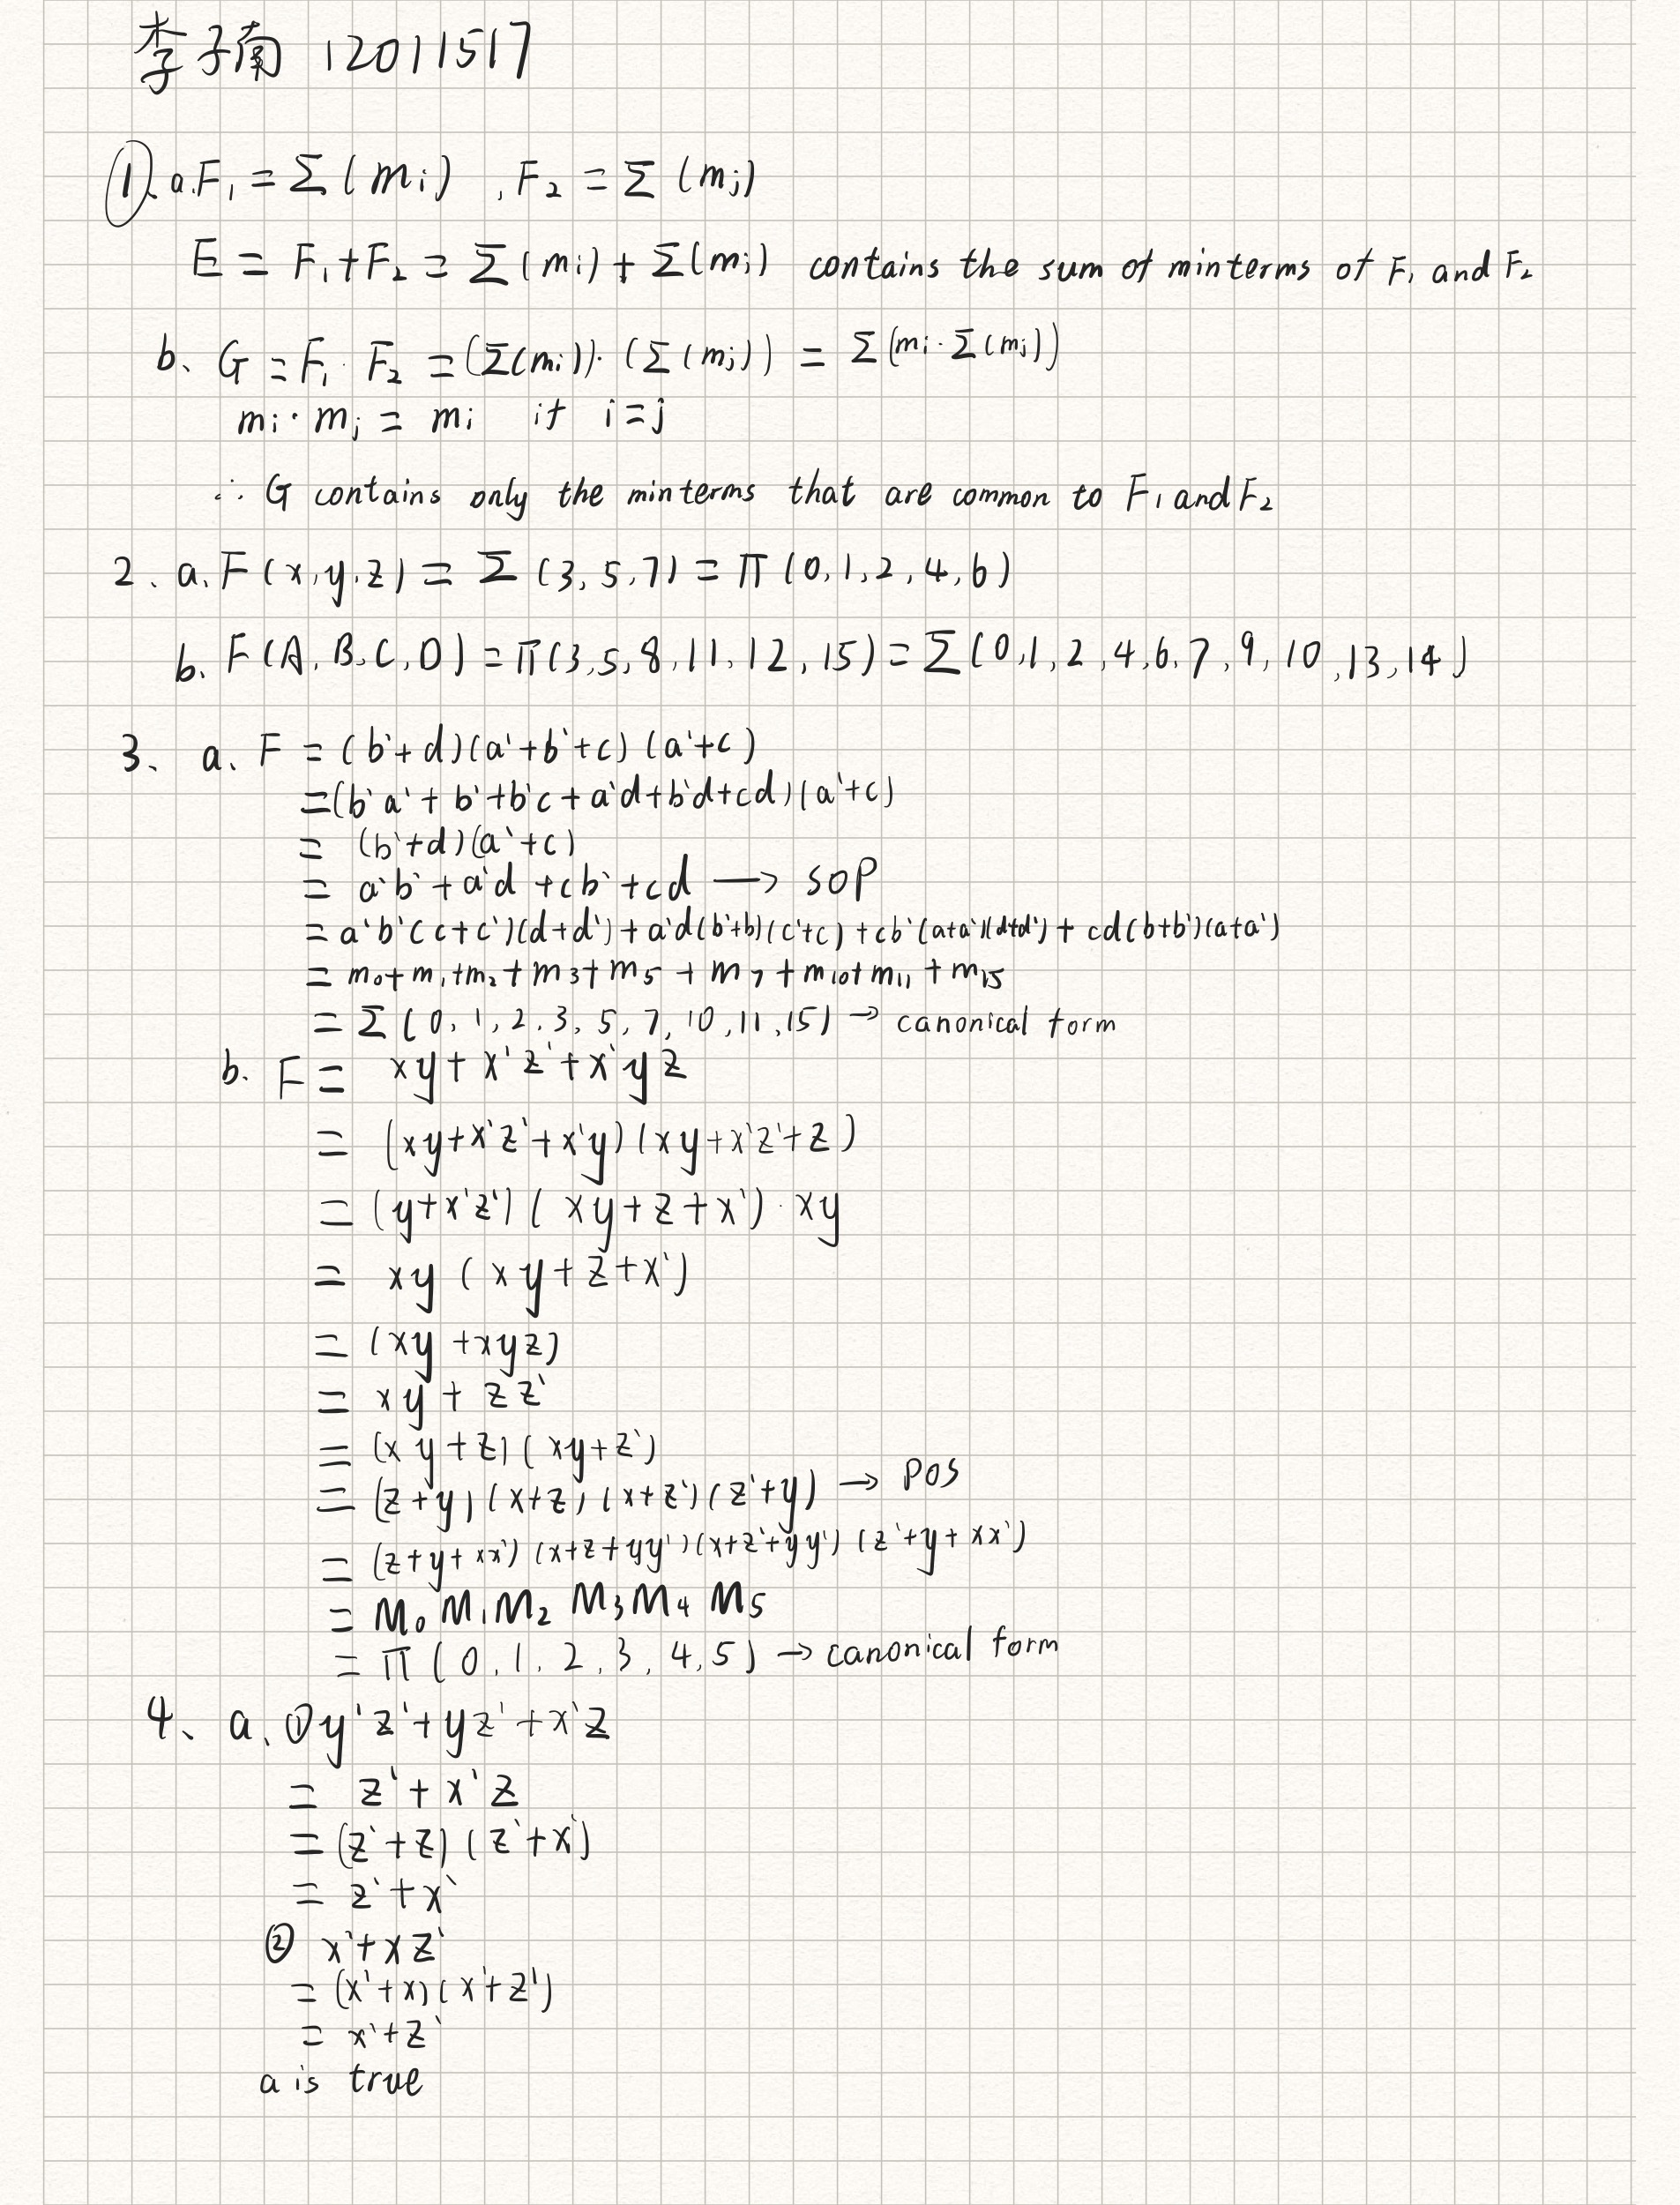 李子南 12011517
①. a. F₁ = Σ(mᵢ) , F₂ = Σ(mⱼ)
E = F₁+F₂ = Σ(mᵢ) + Σ(mⱼ) contains the sum of minterms of F₁ and F₂
b、 G = F₁ · F₂ = (Σ(mᵢ))·(Σ(mⱼ)) = Σ(mᵢ·Σ(mⱼ))
mᵢ·mⱼ = mᵢ if i=j
∴ G contains only the minterms that are common to F₁ and F₂
2、 a. F(x,y,z) = Σ(3,5,7) = Π(0,1,2,4,6)
b. F(A,B,C,D) = Π(3,5,8,11,12,15) = Σ(0,1,2,4,6,7,9,10,13,14)
3、 a、 F = (b'+d)(a'+b'+c)(a'+c)
=(b'a'+b'+b'c+a'd+b'd+cd)(a'+c)
= (b'+d)(a'+c)
= a'b'+a'd+cb'+cd → SOP
= a'b'(c+c')(d+d')+a'd(b'+b)(c'+c)+cb'(a+a')(d+d')+cd(b+b')(a+a')
= m₀+m₁+m₂+m₃+m₅+m₇+m₁₀+m₁₁+m₁₅
= Σ(0,1,2,3,5,7,10,11,15) → canonical form
b. F = xy+x'z'+x'yz
= (xy+x'z'+x'y)(xy+x'z'+z)
= (y+x'z')(xy+z+x')·xy
= xy(xy+z+x')
= (xy+xyz)
= xy+zz'
= (xy+z)(xy+z')
= (z+y)(x+z)(x+z')(z'+y) → POS
= (z+y+xx')(x+z+yy')(x+z'+yy')(z'+y+xx')
= M₀M₁M₂M₃M₄M₅
= Π(0,1,2,3,4,5) → canonical form
4、 a、①y'z'+yz'+x'z
= z'+x'z
= (z'+z)(z'+x')
= z'+x'
② x'+xz'
= (x'+x)(x'+z')
= x'+z'
a is true